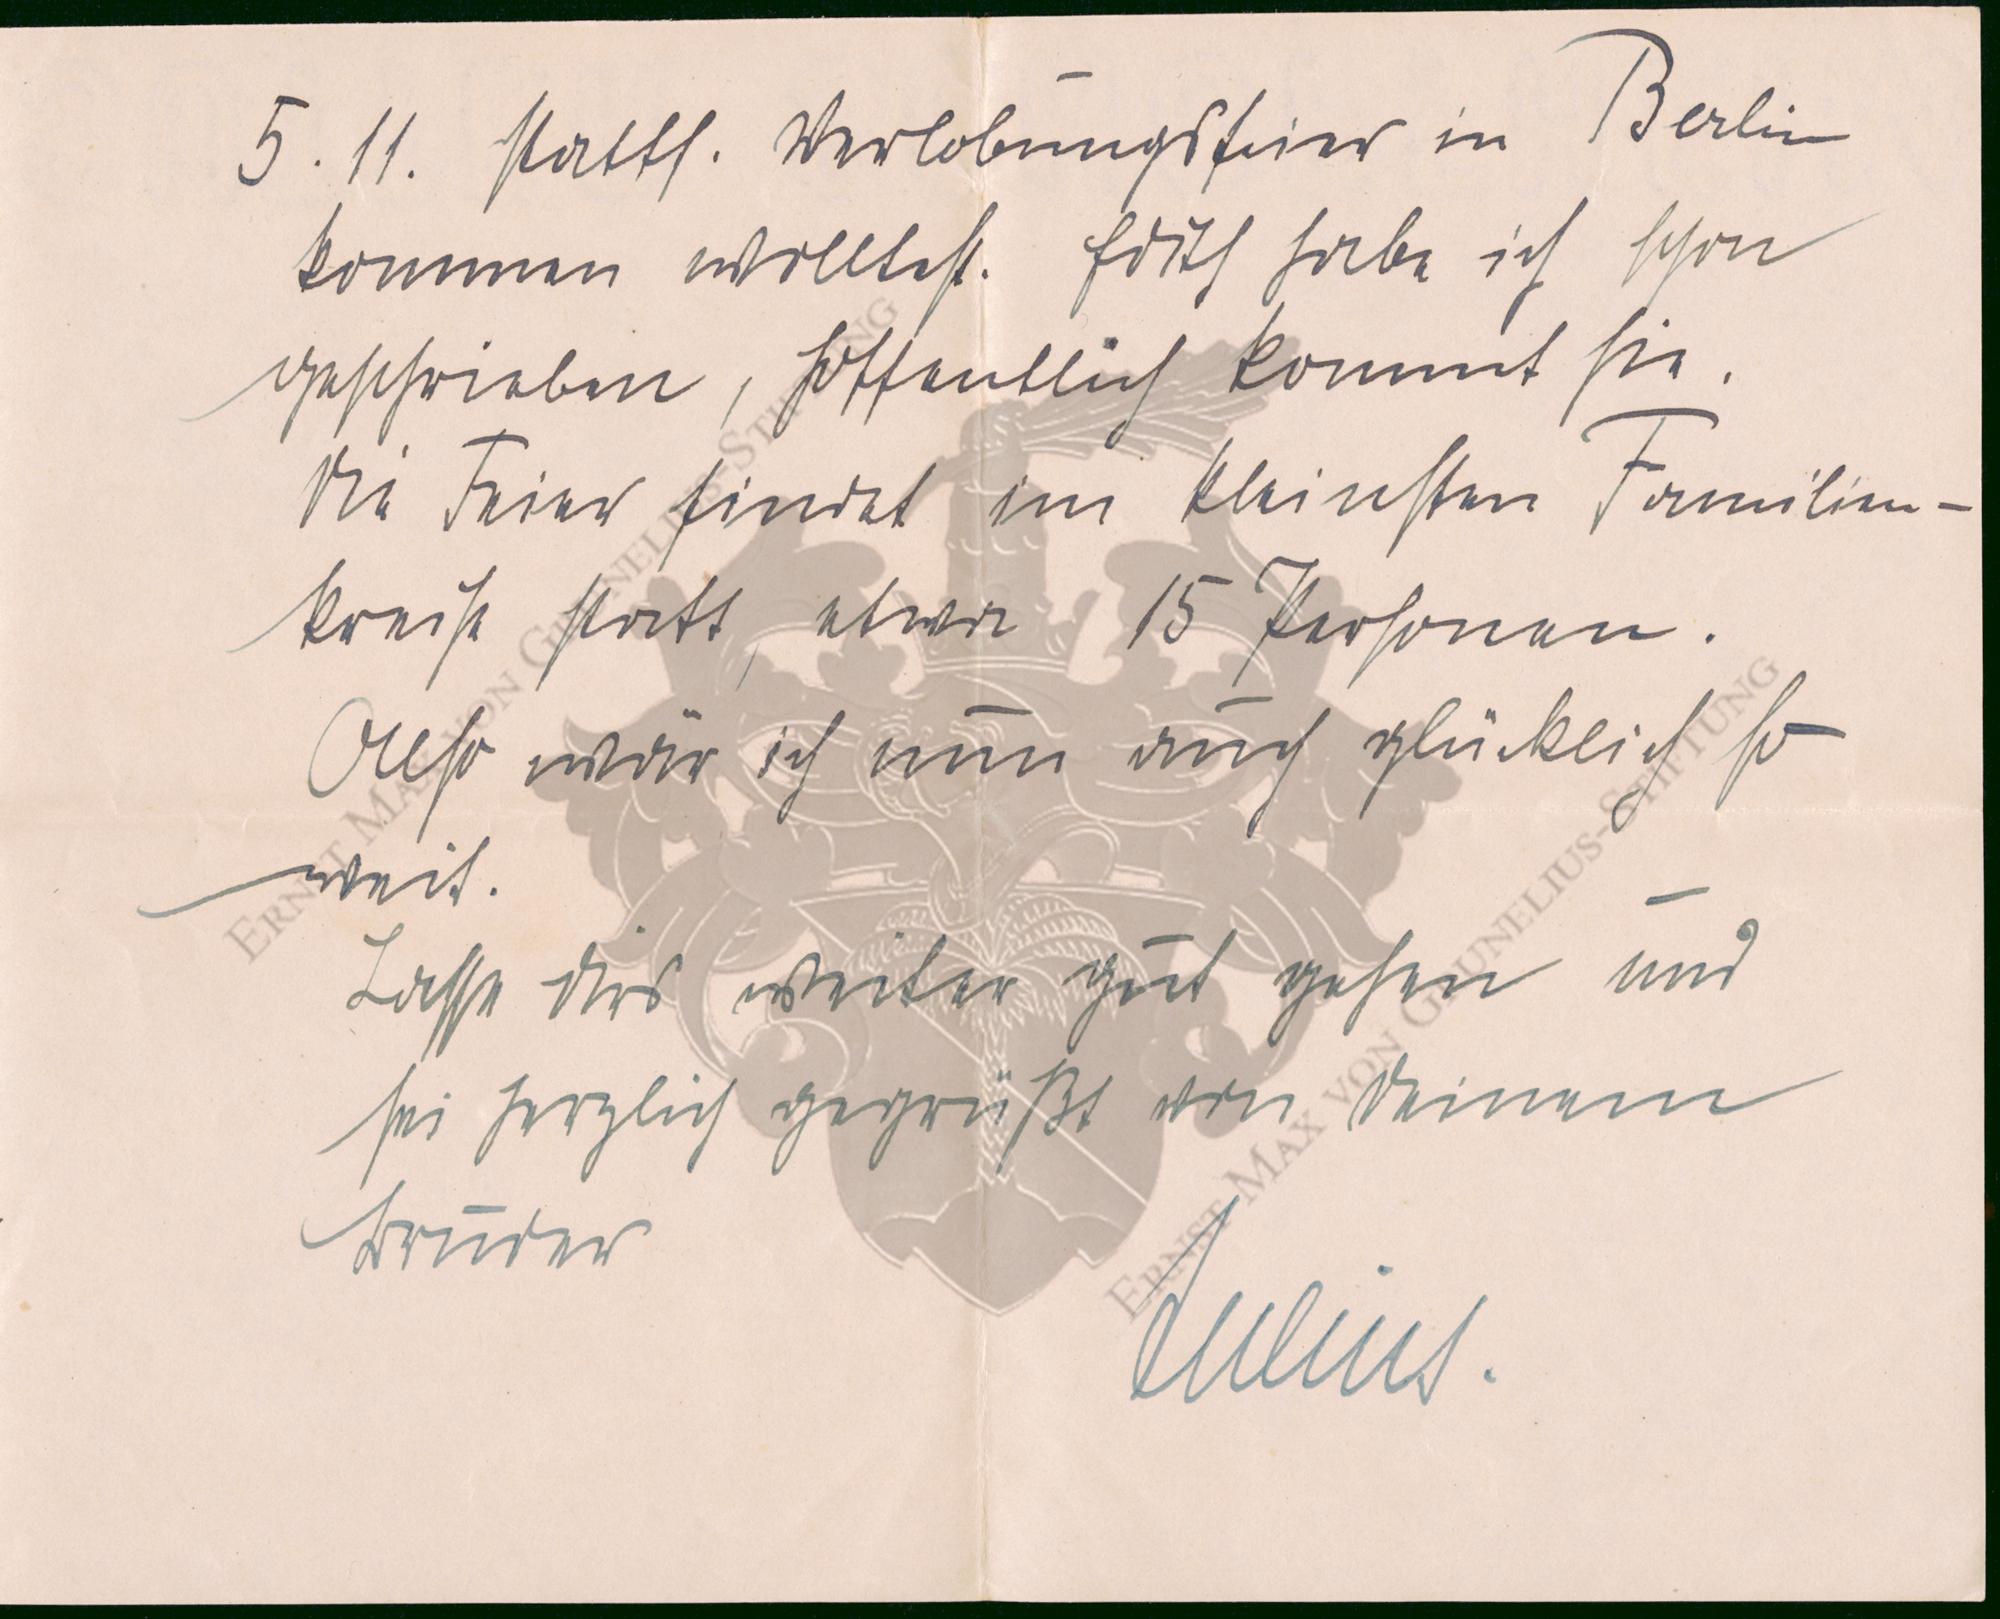 5. 11. stattf. Verlobungsfeier in Berlin
kommen wolltest. Edith habe ich schon
geschrieben, hoffentlich kommt sie.
Die Feier findet im kleinsten Familien-
kreise statt, etwa 15 Personen.
Also wär ich nun auch glücklich so
weit.
Lasse dirs weiter gut gehen und
sei herzlich gegrüßt von Deinem
Bruder
Julius.
ERNST MAX VON GRUNELIUS-STIFTUNG
ERNST MAX VON GRUNELIUS-STIFTUNG